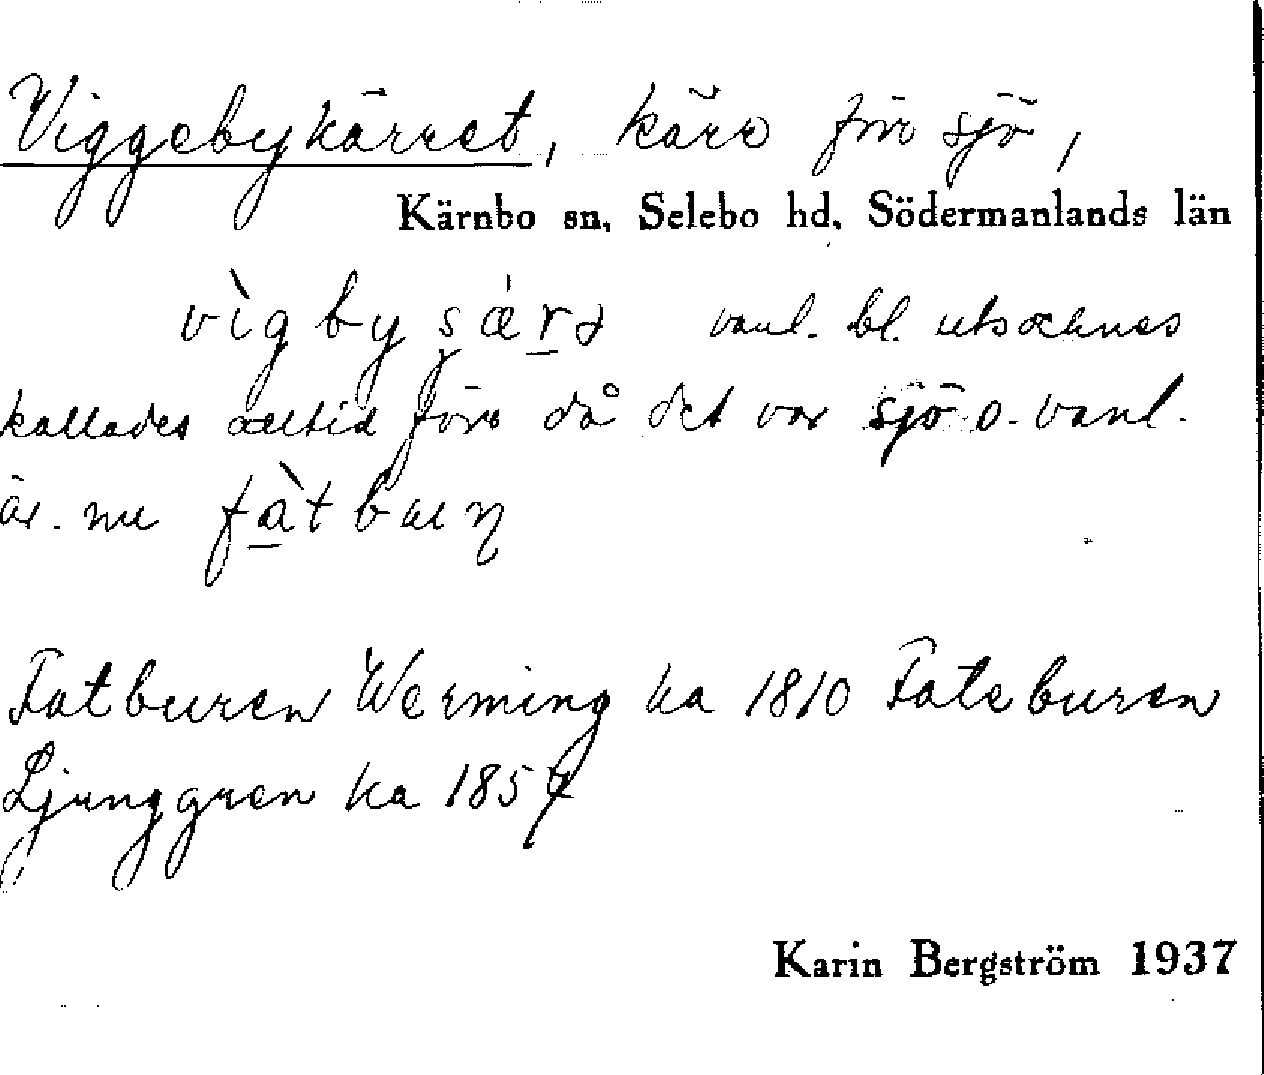 Viggebykärret, kärr förr sjö,
Kärnbo sn, Selebo hd, Södermanlands län
vìgbysær vanl. bl. utsocknes
kallades alltid förr då det var sjö o. vanl.
än nu fàtbun
Fatburen Werming ka 1810 Fateburen
Ljunggren ka 1857
Karin Bergström 1937